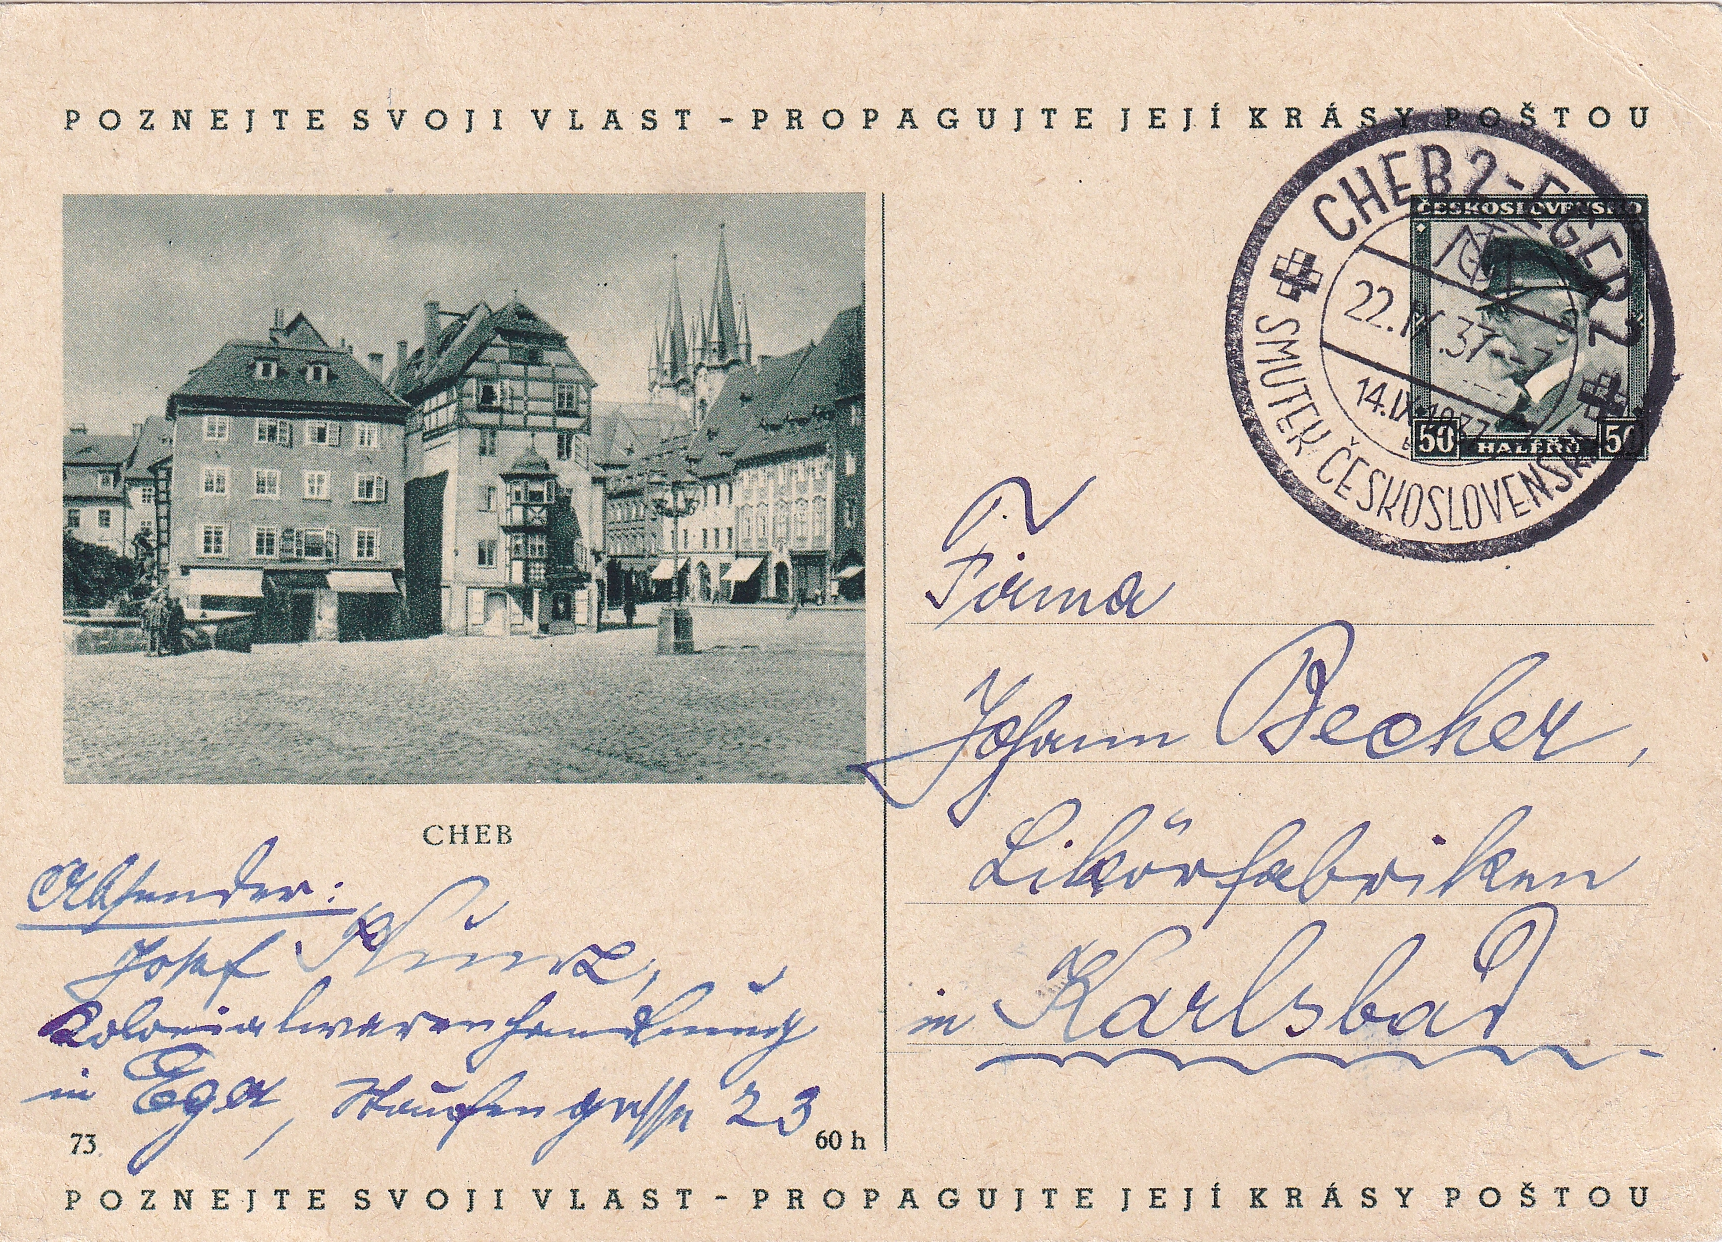 POZNEJTE SVOJI VLAST - PROPAGUJTE JEJÍ KRÁSY POŠTOU
CHEB 2 - EGER 2
22.IX.37
14.IX.1937
SMUTEK ČESKOSLOVENSKA
ČESKOSLOVENSKO
50 HALÉŘŮ 50
Firma
Johann Becher,
Likörfabriken
in Karlsbad
CHEB
Absender:
Josef
Kolonialwarenhandlung
in Eger, Staufengasse 23
73
60 h
POZNEJTE SVOJI VLAST - PROPAGUJTE JEJÍ KRÁSY POŠTOU